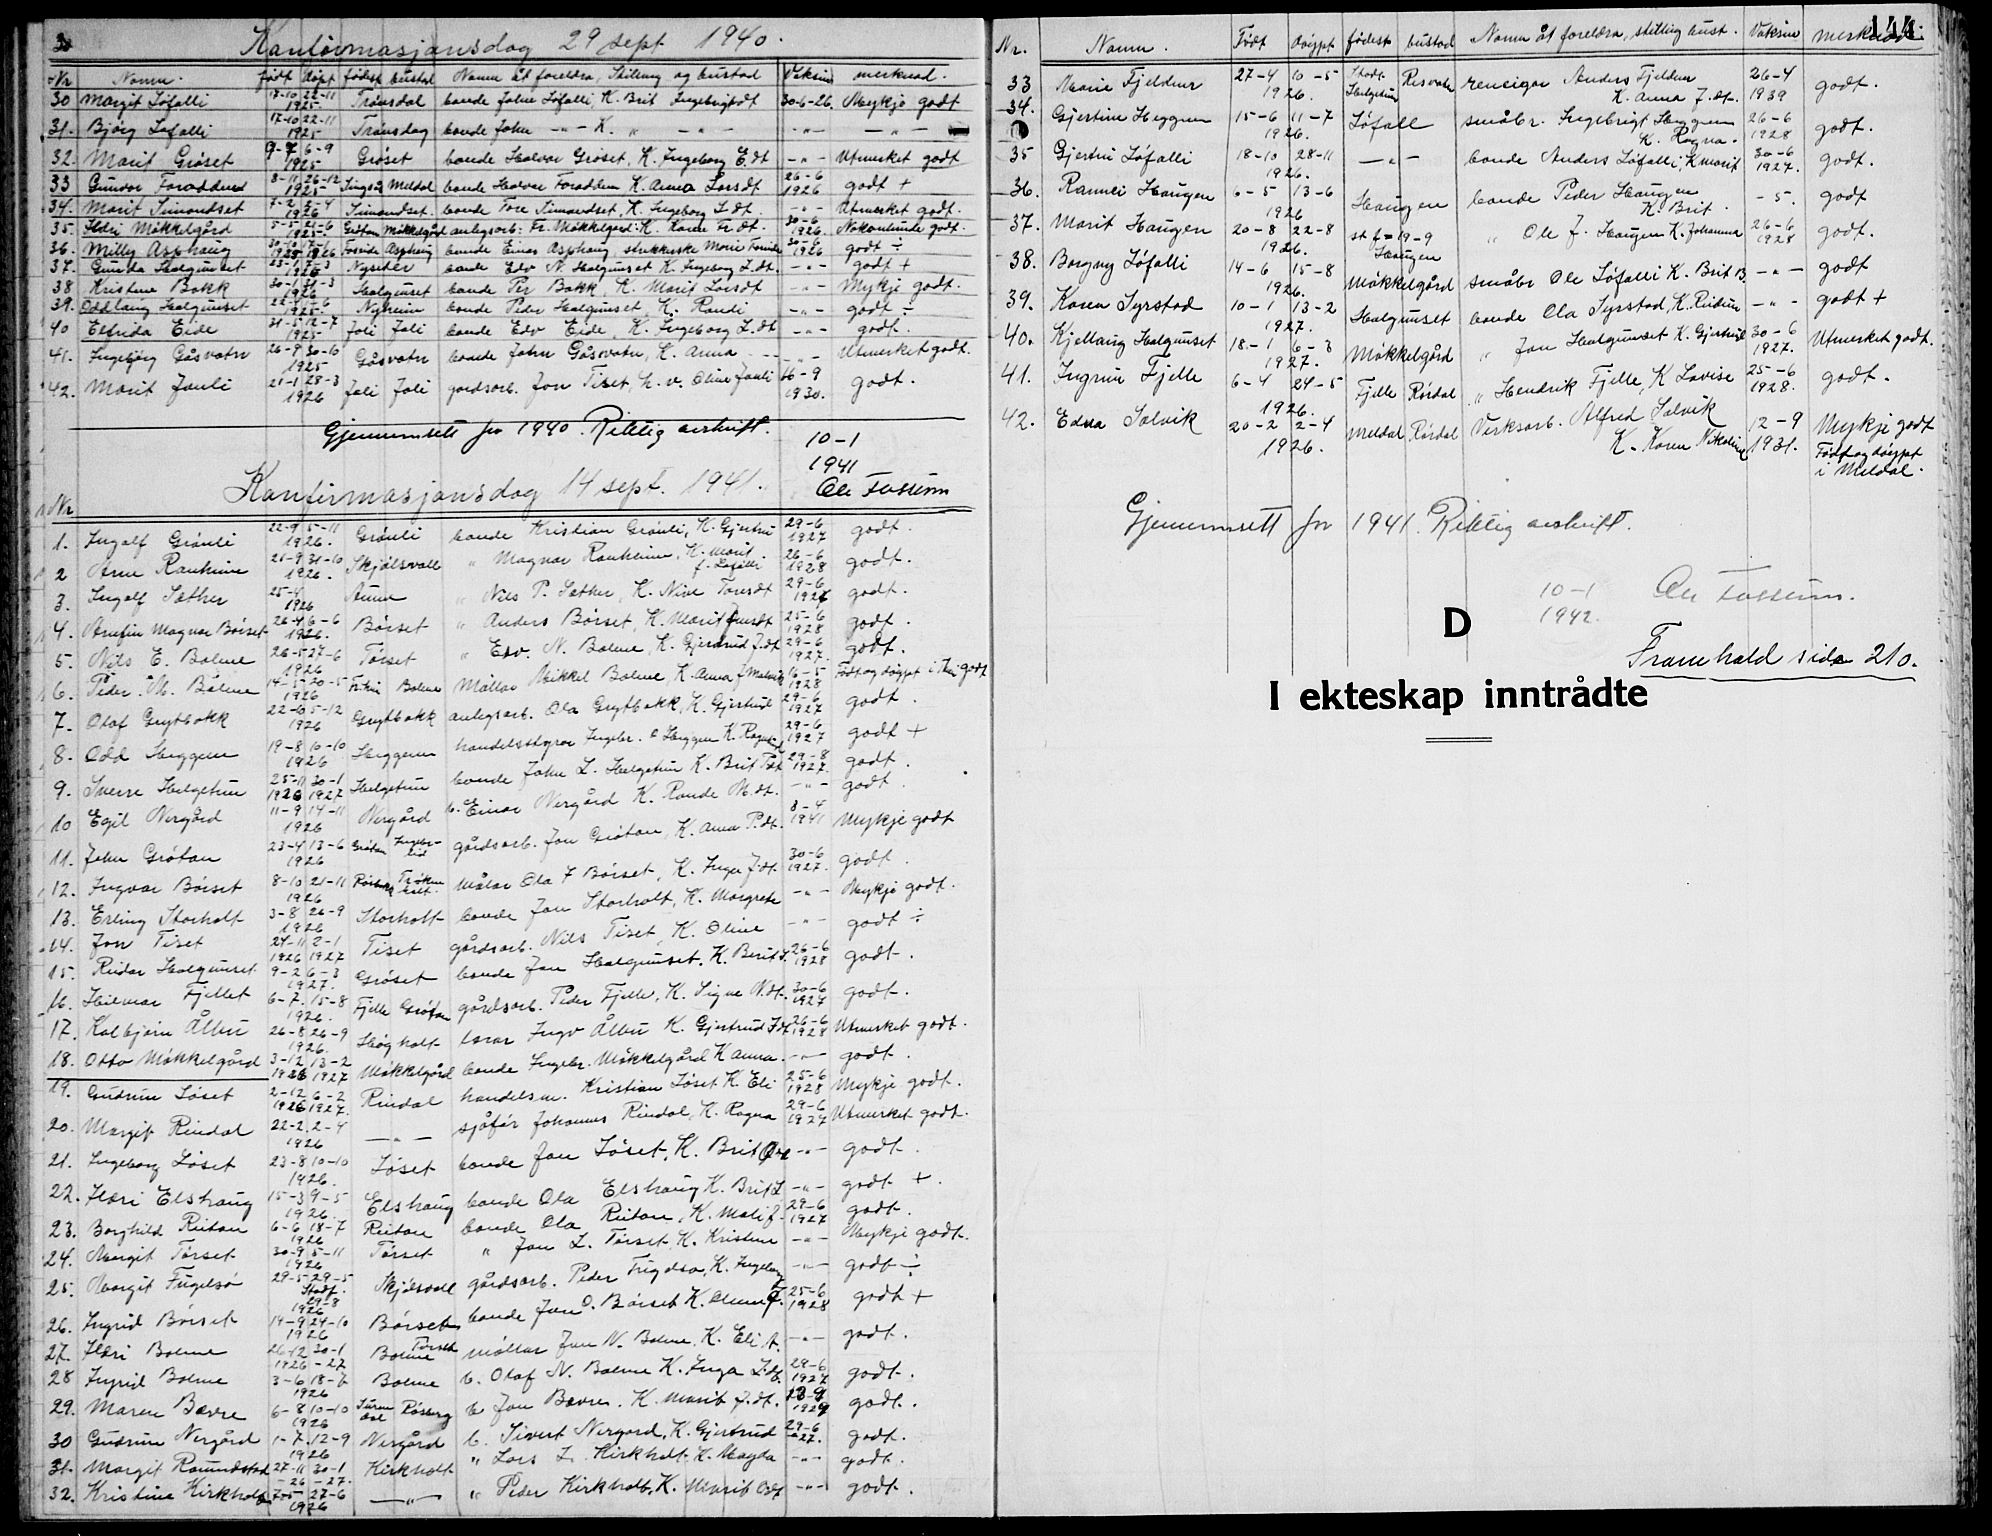 Konfirmasjonsdag 29 sept 1940.
Nr Namn. født døipt fødest bustad Namn åt foreldra, Stilling og bustad Vaksine merknad.
30 Margit Løfalli 17-10 22-11 1925 Trønsdal bonde John Løfalli, K. Brit Ingebrigtdt 30-6-26. Mykje godt
31. Bjørg Løfalli 17-10 22-11 1925 Trønsdag bonde John -"- K. " -"- -"- -"-
32. Marit Grøset 9-7 6-9 1925 Grøset bonde Halvor Grøset, K. Ingeborg E.dt -"- Utmerket godt
33 Gunvor Foraddend 8-11 26-12 1925 Meldal bonde Halvor Foraddem K. Anna Larsdt. 26-6 1926 godt +
34. Marit Simondset 7-2 5-4 1926 Simondset. bonde Tore Simondset, K. Ingeborg L.dt. -"- Utmerket godt.
35. Ildri Møkkelgård 1925 Møkkelgård anlegsarb: Fr. Møkkelgård: K. Karen Fr.dt. 30-6 1926. Nokonlunde godt.
36. Milly Asphaug 30-10 17-6 1925 1926 Foseide Asphaug bonde Einar Asphaug Marie Foseide 30-6 1926 godt ÷
37. Gunda Halgunset 1926 Nyseter bonde Edv N. Halgunset K. Ingeborg L.dt. -"- godt +
38 Kristine Bakk 30-1 31-3 1926 Halgunset bonde Per Bakk, K. Marit Larsdt -"- Mykje godt.
39. Oddlaug Halgunset 1925. Nyheim bonde Peder Halgunset, K. Randi -"- godt ÷
40 Elfrida Eide 31-5 12-7 1925 Joli Joli bonde Edv Eide, K. Ingeborg L.dt -"- godt.
41. Ingebjørg Gåsvatn 26-9 30-10 1925 Gåsvatn bonde John Gåsvatn, K. Anna -"- Utmerket godt.
42. Marit Jauli 21-1 28-3 1926 Joli Joli gardsarb. Jon Tiset, h.v. Oline Jauli 16-9 1930. godt.
Gjennomsett for 1940. Riktig avskrift.
10-1
1941
Ole Fossum
Konfirmasjonsdag 14 sept. 1941.
Nr
1. Ingolf Grønli 22-9 5-11 1926. Grønli bonde Kristian Grønli, K. Gjertrud 29-6 1927 godt.
2 Arne Ranheim 21-9 31-10 1926. Skjølsvoll " Magnar Ranheim, K. Marit f. Løfalli 26-6 1928 godt.
3. Ingolf Sæther 25-4 1926 Aune " Nils P. Sæther, K. Nive Toresdt 29-6 1926 godt.
4. Arnfin Magnar Børset 26-4 6-6 1926. Børset " Anders Børset, K. Marit Jensdt 25-6 1928 godt.
5. Nils E. Bolme 26-5 27-6 1926 Tørset " Edv. N. Bolme, K. Gjertrud J.dt 29-6 1927. godt.
6. Peder M. Bolme 14-5 20-5 1926 Bolme Møllar Mikkel Bolme K. Anna 16-5 1928 Født og døypt i godt
7. Olaf Grytbakk 22-10 5-12 1926 Grytbakk anlegsarb. Ola Grytbakk, K. Gjertrud 29-6 1927 godt.
8. Odd Heggem 19-8 10-10 1926 Heggem handelsstyrar Ingebr. O Heggem K. Ragnhild 29-6 1927 godt +
9. Sverre Helgetun 25-11 30-1 1926 1927 Helgetun bonde John L. Helgetun K. Brit 29-8 1927. godt.
10 Egil Nergård 11-9 14-11 1926 Nergård b. Einar Nergård K. Rande M.dt. -"- godt.
11. John Grøtan 23-4 13-6 1926 Grøtan gårdsarb. Jon Grøtan, K. Anna P.dt. 8-4 1941 Mykje godt
12. Ingvar Børset 8-10 21-11 1926 målar Ola J Børset, K. Inga J.dt. 30-6 1927. godt.
13. Erling Storholt 3-8 26-9 1926 Storholt bonde Jon Storholt, K. Margrete -"- Mykje godt.
14. Jon Tiset 24-11 2-1 1926 1927 Tiset gårdsarb. Nils Tiset, K. Oline -"- godt ÷
15. Reidar Halgunset 9-2 6-3 1927. Grøset bonde Jon Halgunset, K. Berit 26-6 1928 godt.
16. Hilmar Fjellet 6-7. 15-8 1926. Fjelle Grøtan gårdsarb. Peder Fjelle, K. Signe N.dt. 30-6 1927 godt.
17. Kolbjørn Ålbu 26-8 26-9 1926. Høgholt lærar Ingv Ålbu K. Gjertrud J.dt 26-6 1928 Utmerket godt.
18. Otto Møkkelgård 3-12 13-2 1926 1927 Møkkelgård bonde Ingebr. Møkkelgård K Anna. -"- godt.
19. Gudrun Løset 2-12 6-2 1926 1927. Rindal handelsm. Kristian Løset K. Eli 25-6 1928 Mykje godt.
20. Margit Rindal 22-2 2-4 1926 -"- sjåfør Johannes Rindal, K. Ragna 29-6 1927 Utmerket godt.
21. Ingeborg Løset 23-8 10-10 1926. Løset bonde Jon Løset, K. Brit -"- godt.
22. Ildri Elshaug 15-3 9-5 1926. Elshaug bonde Ola Elshaug K. Brit L -"- godt +.
23. Borghild Reitan 6-6 18-7 1926 Reitan bonde Ola Reitan, K. Mali J. 29-6 1927 godt.
24. Margit Tørset 30-9 5-11 1926 Tørset " Jon L. Tørset, K. Kristine -"- Mykje godt.
25. Margit Fugelsø 29-5 29-5 Stadf. 29-8 1926 Skjølsvoll gårdsarb. Peder Fugelsø, K. Ingeborg -"- godt ÷
26. Ingrid Børset 14-9 24-10 1926 Børset bonde Jon O. Børset K. 25-6 1928 godt +
27. Ildri Bolme 26-12 30-1 1926-27 Bolme Tørset møllar Jon N. Bolme, K. Eli A. -"- godt.
28 Ingrid Bolme 3-6 18-7 1926 Bolme b. Olaf N. Bolme K. Inga L.dt. 29-6 1927 godt.
29. Maren Bævre 6-8 10-10 1926 b Jon Bævre. K. Marit J.dt. godt.
30 Gudrun Nergård 1-7. 12-9 1926 Nergård b. Sivert Nergård, K. Gjertrud 29-6 -27. godt.
31. Margit Romundstad 27-11 30-1 -26 -27. Kirkholt " Lars L. Kirkholt K. Magda -"- godt.
32. Kristine Kirkholt 27-6 1926 -"- " Peder Kirkholt, K. Marit -"- godt.
144.
Nr. Namn. Født døypt fødest bustad Namn åt foreldra, stilling bust. Vaksine merknad
33 Marie Fjeldner 27-4 10-5 1926. Stadf. Helgetun reneigar Anders Fjeldner K. Anna J.dt. 26-4 1939 godt.
34. Gjertine Heggem 15-6 11-7 1926. Løfall småbr. Ingebrigt Heggem K. Ragna. 26-6 1928 godt.
35 Gjertru Løfalli 18-10 28-11 1926. -"- bonde Anders Løfalli, K Marit 30-6 1927. godt.
36. Rannei Haugen 6-5 13-6 1926 Haugen bonde Peder Haugen K. Brit. -5. godt
37. Marit Haugen 20-8 22-8 1926. st f = 19-9 Haugen " Ole J. Haugen K. Johanna 26-6 1928 godt.
38. Borgny Løfalli 14-6 15-8 1926. Møkkelgård småbr Ole Løfalli K. Brit B. -"- godt
39. Karen Syrstad 10-1 13-2 1927. Halgunset bonde Ola Syrstad, K. -"- godt +
40. Kjellaug Halgunset 18-1 6-3 1927. Møkkelgård " Jon Halgunset K. Gjertrud 30-6 1927. Utmerket godt.
41. Ingrun Fjelle 6-4 24-5 1926. Fjelle Rørdal " Hendrik Fjelle, K Lovise 25-6 1928. godt.
42. Edna Solvik 20-2 2-4 1926. Meldal Rørdal Verksarb. Alfred Solvik K. Karen Nikoline 12-9 1931. Mykje godt
Født og døypt
i Meldal.
Gjennomsett for 1941. Riktig avskrift.
10-1
1942. Ole Fossum.
D
Framhald side 210.
I ekteskap inntrådte